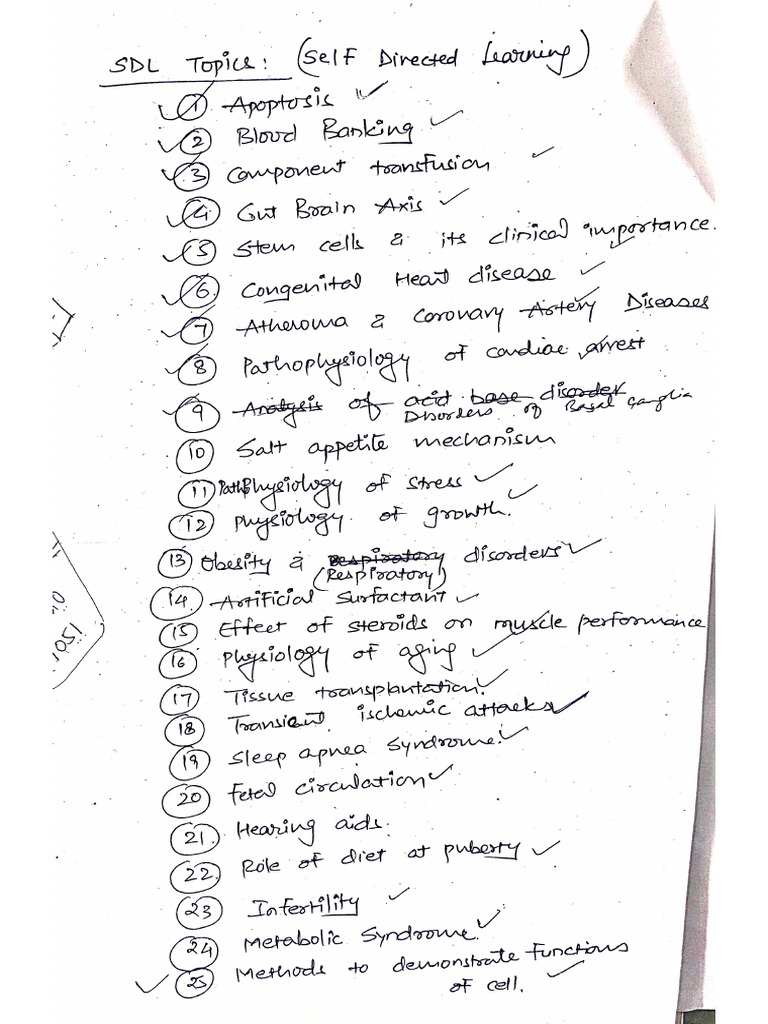 SDL Topics: (Self Directed Learning)
1 Apoptosis
2 Blood Banking
3 Component transfusion
4 Gut Brain Axis
5 Stem cells & its clinical importance.
6 Congenital Heart disease
7 Atheroma & Coronary Artery Diseases
8 Pathophysiology of cardiac arrest
9 Analysis of acid base disorder
Disorders of Basal Ganglia
10 Salt appetite mechanism
11 PathoPhysiology of stress
12 Physiology of growth.
13 Obesity & Respiratory disorders
(Respiratory)
14. Artificial Surfactant
15 Effect of steroids on muscle performance
16 Physiology of aging
17 Tissue transplantation.
18 Transient ischemic attacks
19 Sleep apnea Syndrome.
20 Fetal circulation
21. Hearing aids.
22. Role of diet at puberty
23 Infertility
24 Metabolic Syndrome.
25 Methods to demonstrate Functions
of cell.